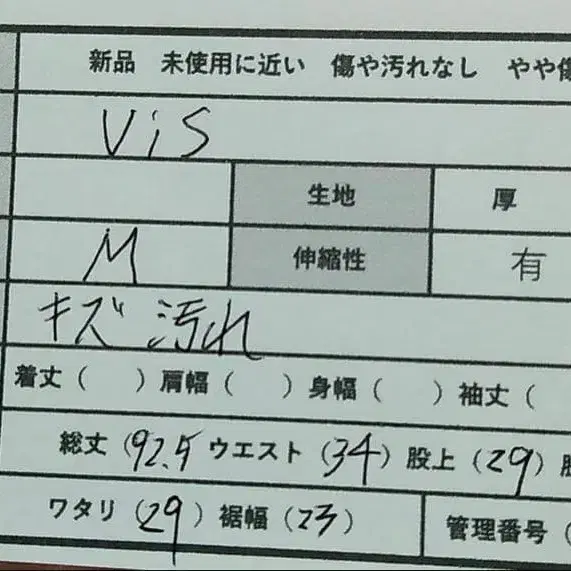 新品 未使用に近い 傷や汚れなし やや
ViS
生地 厚
M 伸縮性 有
キズ 汚れ
着丈( )肩幅( )身幅( )袖丈(
総丈(92.5 ウエスト(34)股上(29)
ワタリ(29)裾幅(23) 管理番号(